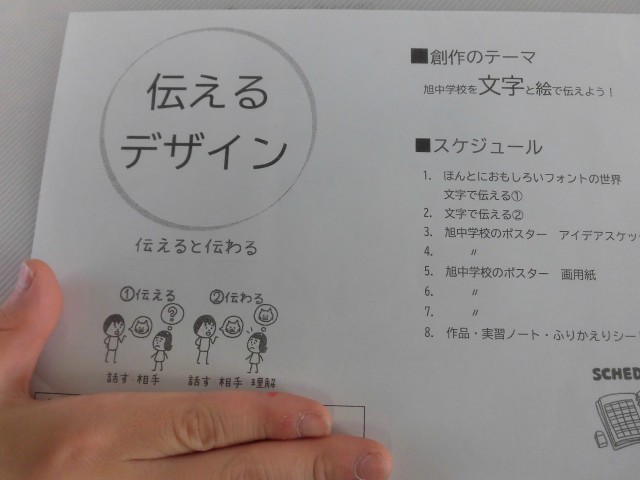 伝える
デザイン
伝えると伝わる
①伝える ②伝わる
?
話す 相手 話す 相手 理解
■創作のテーマ
旭中学校を文字と絵で伝えよう!
■スケジュール
1. ほんとにおもしろいフォントの世界
文字で伝える①
2. 文字で伝える②
3. 旭中学校のポスター アイデアスケッ
4. 〃
5. 旭中学校のポスター 画用紙
6. 〃
7. 〃
8. 作品・実習ノート・ふりかえりシー
SCHED